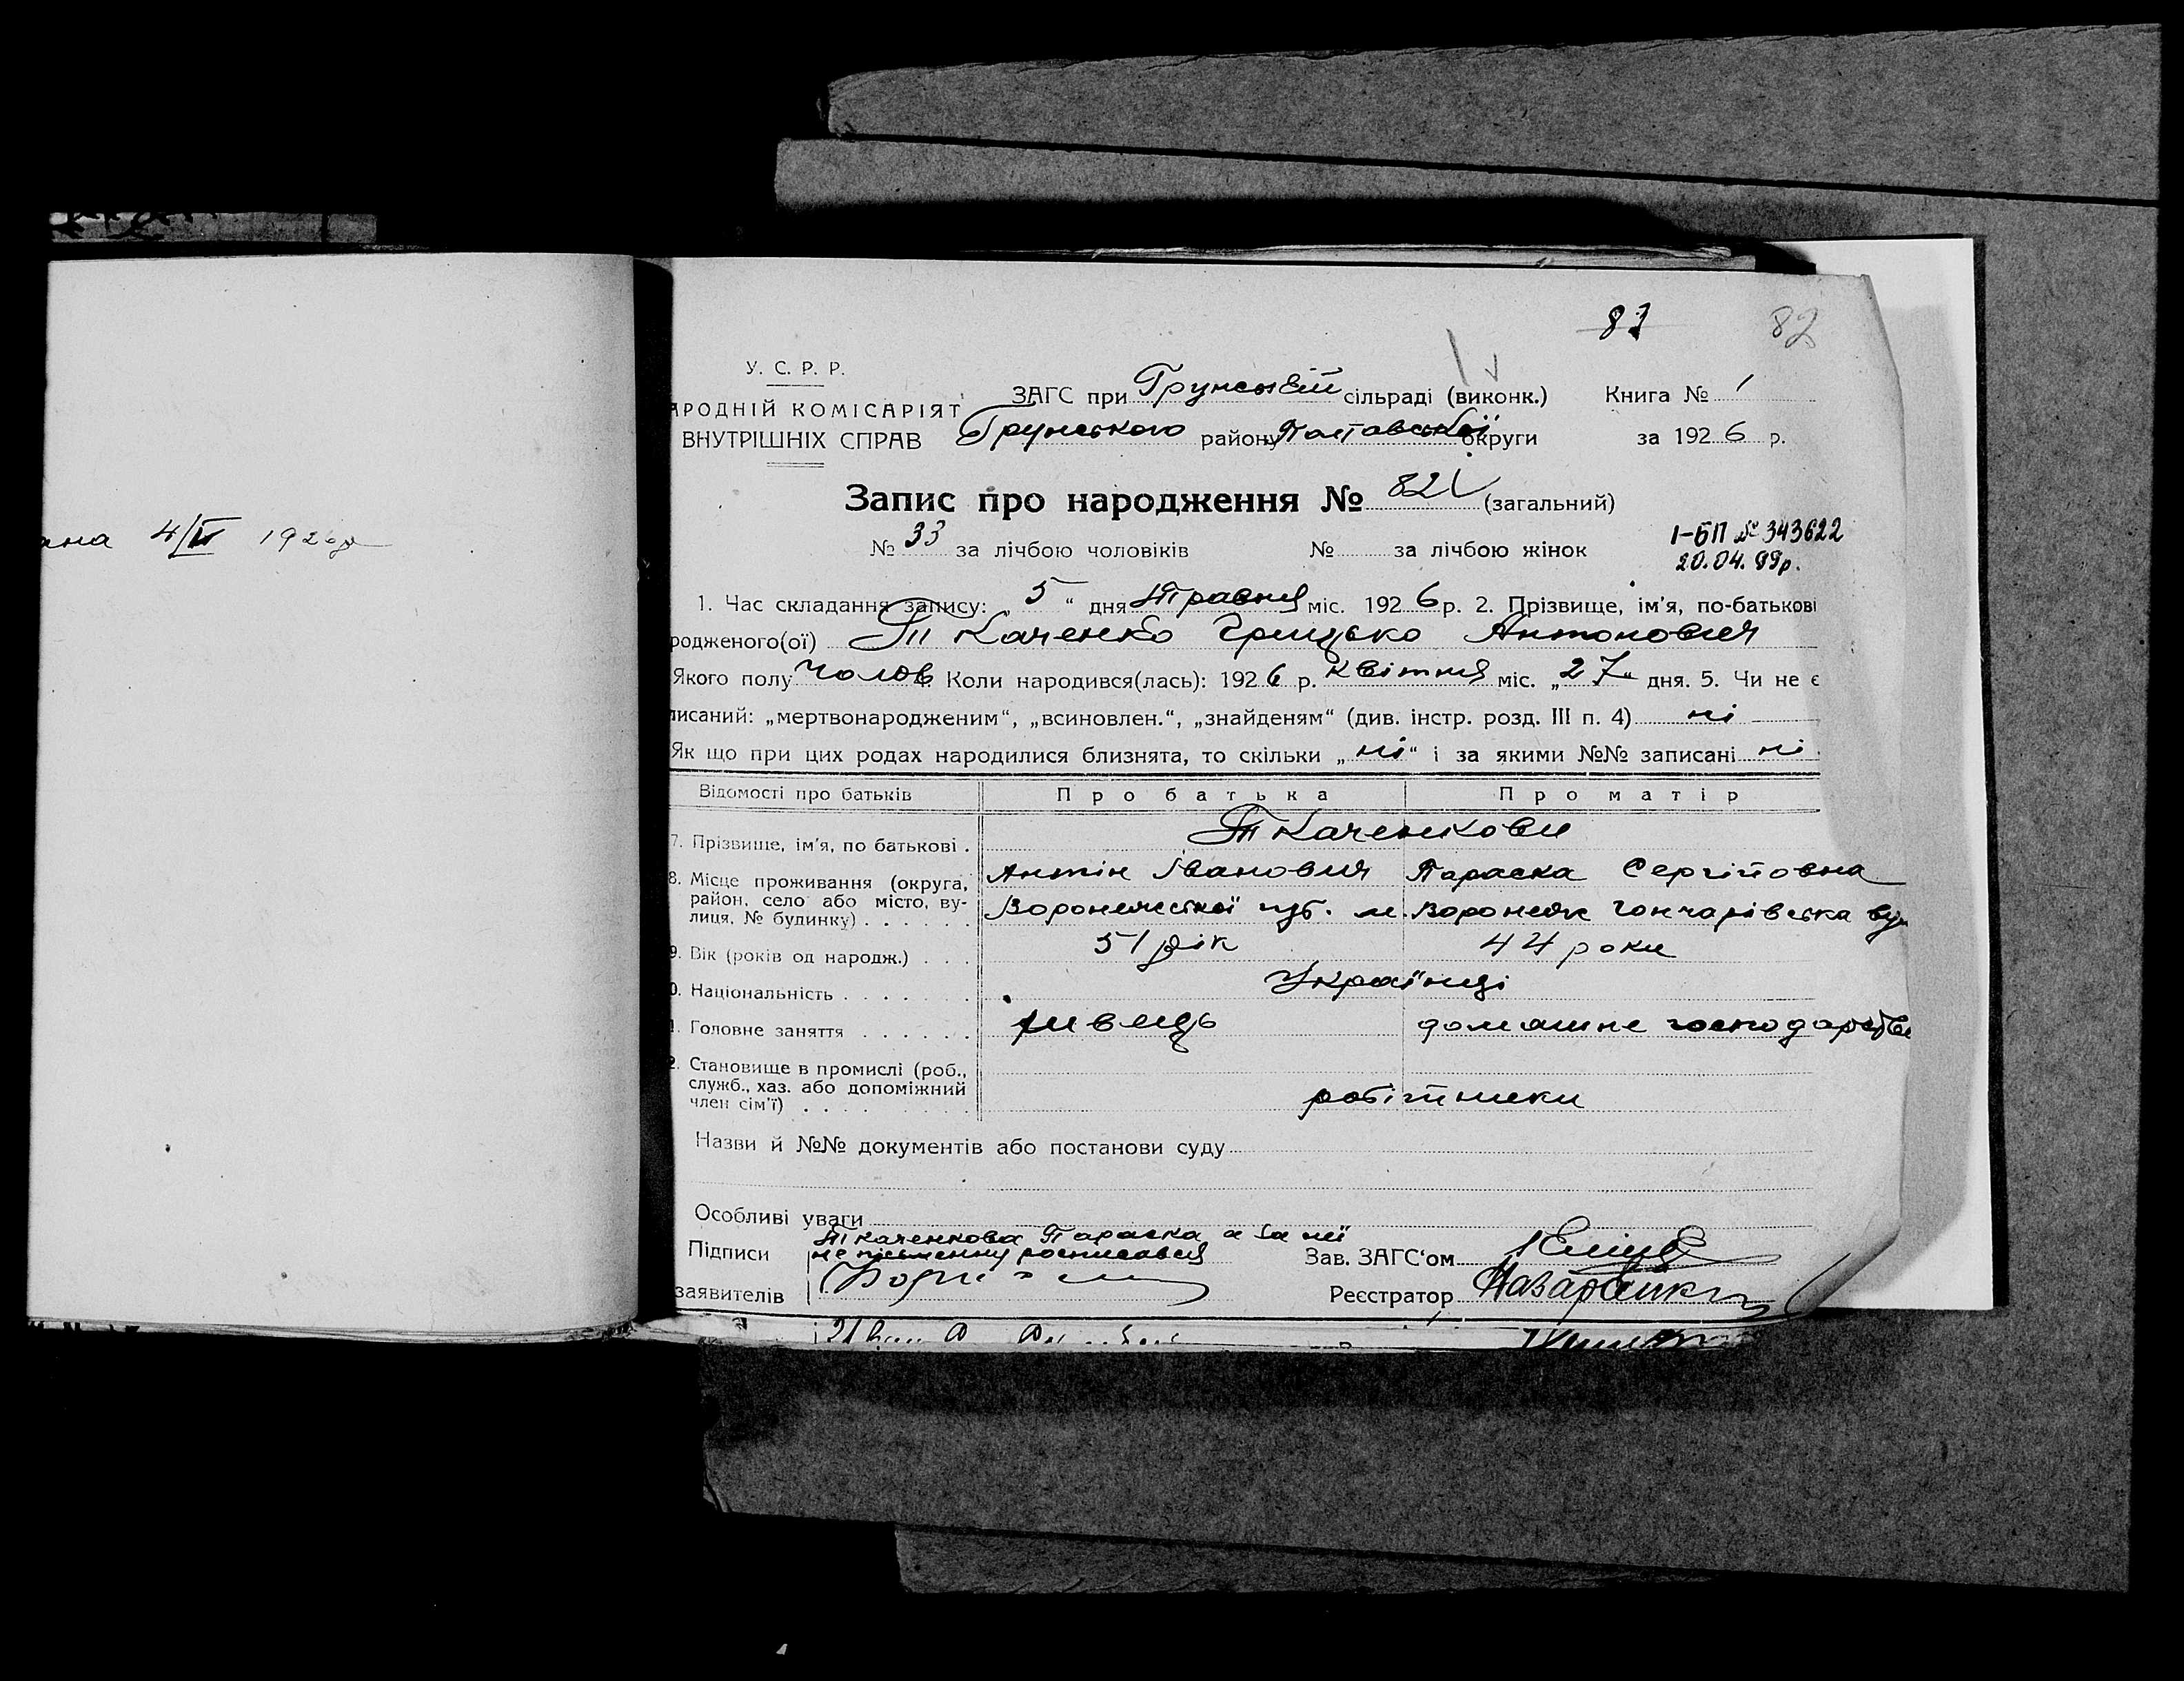 83 82
У. С. Р. Р.
АРОДНІЙ КОМІСАРІЯТ
ВНУТРІШНІХ СПРАВ
ЗАГС при Грунській сільраді (виконк.) Книга № 1
Грунського району Полтавської округи за 1926 р.
Запис про народження № 82 (загальний)
№ 33 за лічбою чоловіків № за лічбою жінок
І-БП № 343622
20.04.89р.
ана 4/IV 1926р
1. Час складання запису: „ 5 “ дня Травня міс. 1926 р. 2. Прізвище, ім'я, по-батькові
родженого(ої) Ткаченко Грицько Антонович
Якого полу чолов. Коли народився(лась): 1926 р. квітня міс. „ 27 “ дня. 5. Чи не є
писаний: „мертвонародженим“, „всиновлен.“, „знайденям“ (див. інстр. розд. III п. 4) ні
Як що при цих родах народилися близнята, то скільки „ ні “ і за якими №№ записані ні
Відомості про батьків Про батька Про матір
7. Прізвище, ім'я, по батькові . Ткаченкови
Антін Іванович Параска Сергіївна
8. Місце проживання (округа,
район, село або місто, ву-
лиця, № будинку) . . . . . . Воронежської губ. м. Воронеж Гончарівська вул
9. Вік (років од народж.) . . . 51 рік 44 роки
0. Національність . . . . . . . Українці
1. Головне заняття . . . . . . швець домашнє господарство
2. Становище в промислі (роб.,
служб., хаз. або допоміжний
член сім'ї) . . . . . . . . . робітники
Назви й №№ документів або постанови суду
Особливі уваги
Ткаченкова Параска а за неї
Підписи неписьменну росписався
Зав. ЗАГС'ом
заявителів
Реєстратор